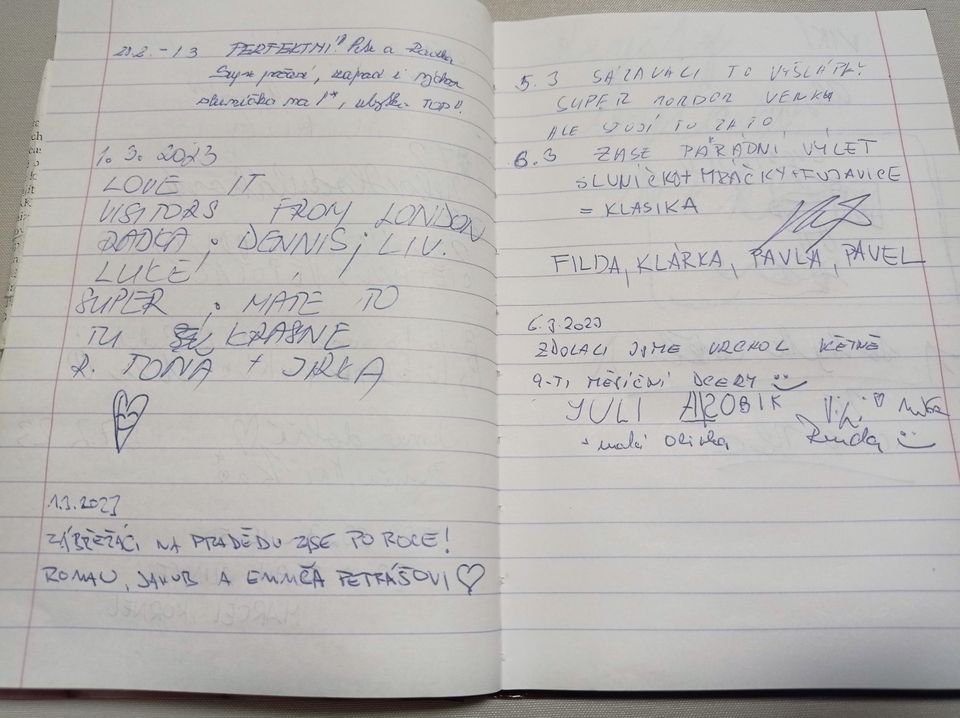 28.2. - 1.3 PERFEKTNÍ! Péťa a Radka
Super počasí, západ i východ
sluníčka na 1*, ubytko TOP!!
1. 3. 2023
LOVE IT
VISITORS FROM LONDON
RADKA, DENNIS, LIV.
LUKE
SUPER, MÁTE TO
TU KRASNE
R. TOŇA + JIRKA
1.3.2023
ZÁBŘEŽÁCI NA PRADĚDU ZASE PO ROCE!
ROMAN, JAKUB A EMMČA PETRÁŠOVI
5.3 SÁZAVÁCI TO VYŠLÁPLI
SUPER MORDOR VENKU
ALE STOJÍ TO ZA TO
6.3 ZASE PÁRÁDNÍ VÝLET
SLUNÍČKO + MRÁČKY + FUJAVICE
= KLASIKA
FILDA, KLÁRKA, PAVLA, PAVEL
6.3.2023
ZDOLALI JSME VRCHOL VČETNĚ
9-TI MĚSÍČNÍ DCERY
YULI Viki
+ malá Olivka